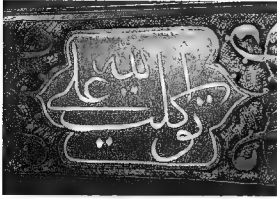 توکلت علی الله